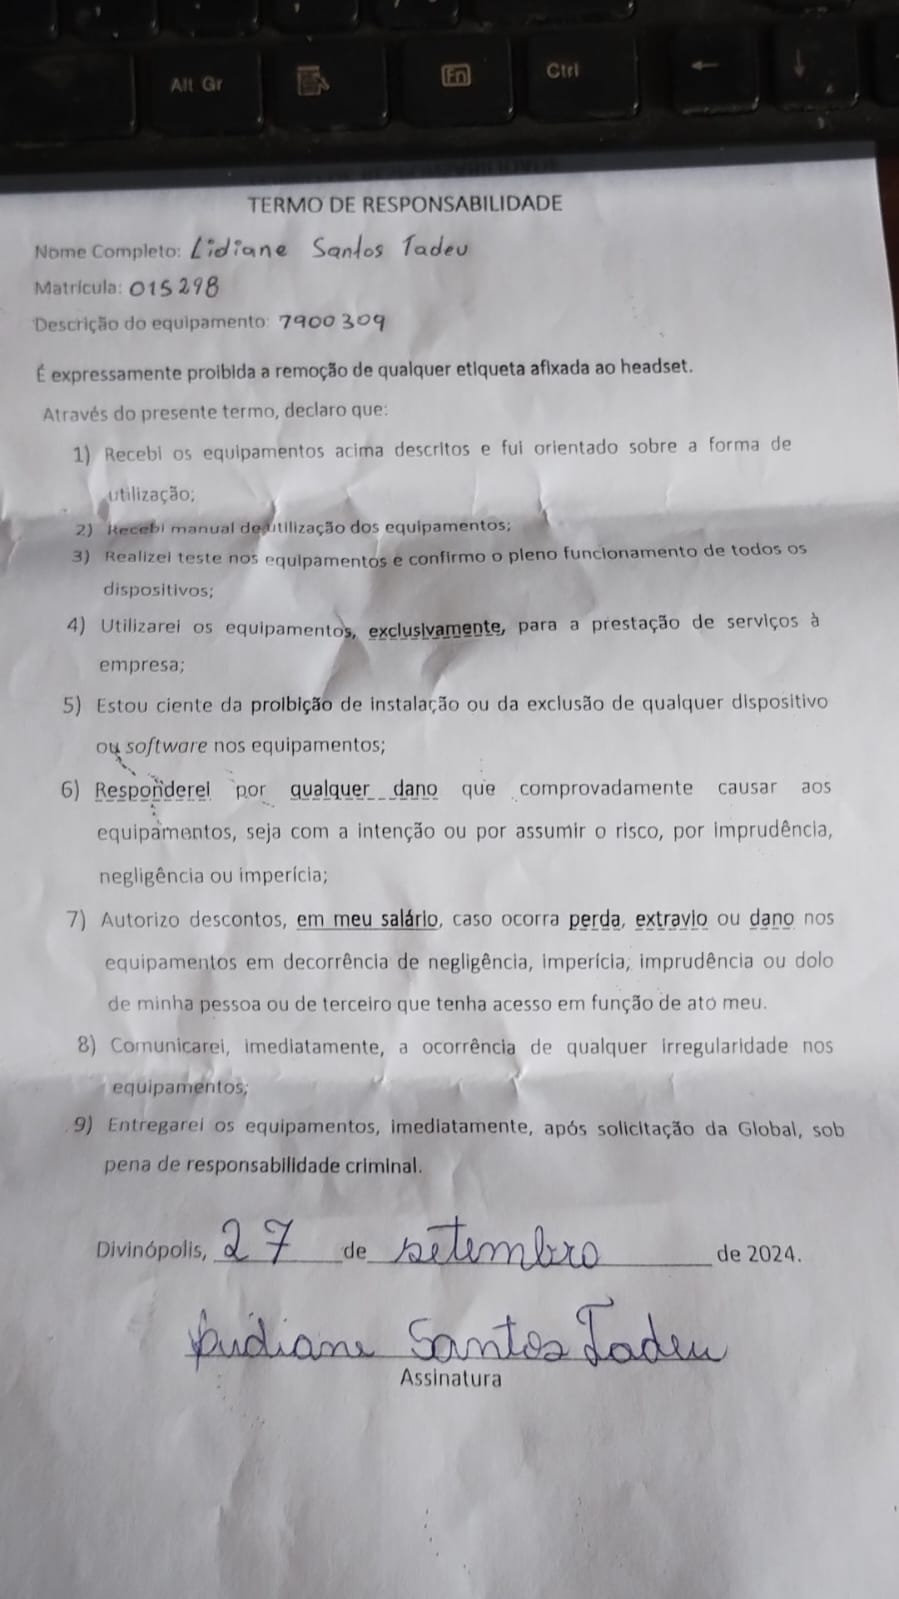 Alt Gr
Fn
Ctrl
←
↓
TERMO DE RESPONSABILIDADE
Nome Completo: Lidiane Santos Tadeu
Matrícula: 015298
Descrição do equipamento: 7900309
É expressamente proibida a remoção de qualquer etiqueta afixada ao headset.
Através do presente termo, declaro que:
1) Recebi os equipamentos acima descritos e fui orientado sobre a forma de
utilização;
2) Recebi manual de utilização dos equipamentos;
3) Realizei teste nos equipamentos e confirmo o pleno funcionamento de todos os
dispositivos;
4) Utilizarei os equipamentos, exclusivamente, para a prestação de serviços à
empresa;
5) Estou ciente da proibição de instalação ou da exclusão de qualquer dispositivo
ou software nos equipamentos;
6) Responderei por qualquer dano que comprovadamente causar aos
equipamentos, seja com a intenção ou por assumir o risco, por imprudência,
negligência ou imperícia;
7) Autorizo descontos, em meu salário, caso ocorra perda, extravio ou dano nos
equipamentos em decorrência de negligência, imperícia, imprudência ou dolo
de minha pessoa ou de terceiro que tenha acesso em função de ato meu.
8) Comunicarei, imediatamente, a ocorrência de qualquer irregularidade nos
equipamentos;
9) Entregarei os equipamentos, imediatamente, após solicitação da Global, sob
pena de responsabilidade criminal.
Divinópolis, 27 de setembro de 2024.
Lidiane Santos Tadeu
Assinatura